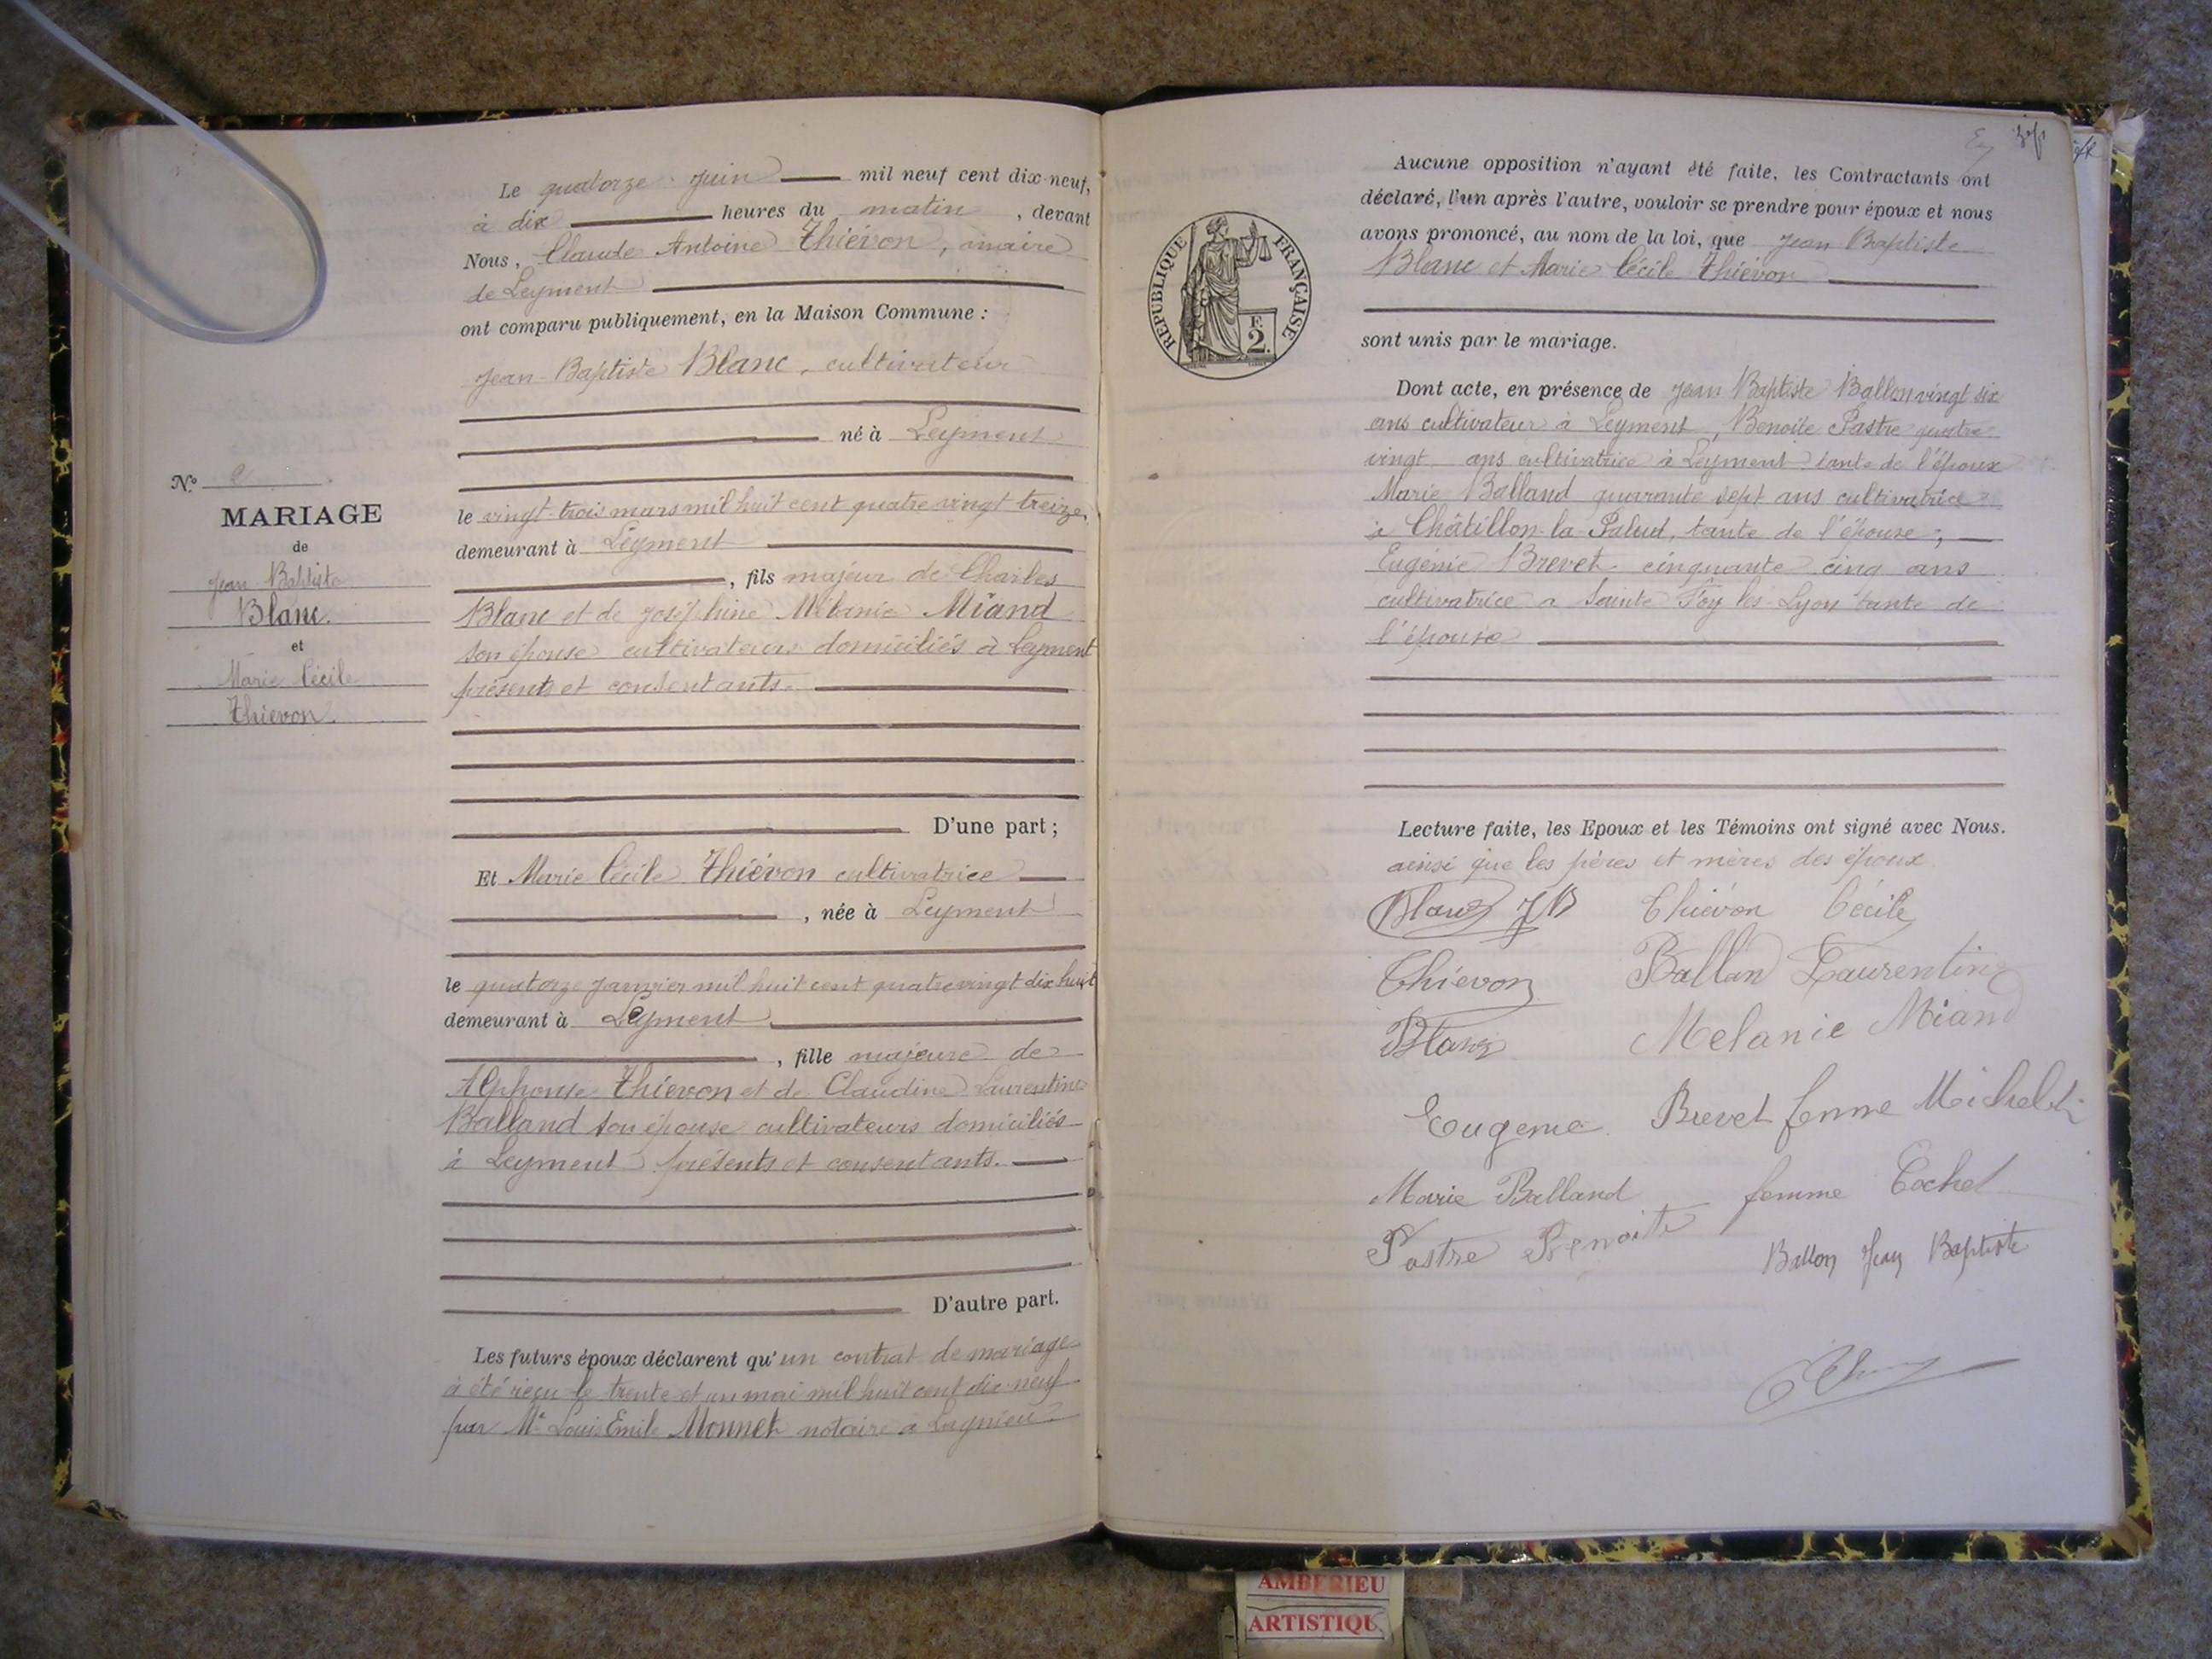 N° 2
MARIAGE
de
Jean Baptiste
Blanc.
et
Marie Cécile
Thiévon
Le quatorze Juin mil neuf cent dix-neuf,
à dix heures du matin, devant
Nous, Claude Antoine Thiévon, maire
de Leyment
ont comparu publiquement, en la Maison Commune :
Jean-Baptiste Blanc, cultivateur
né à Leyment
le vingt-trois mars mil huit cent quatre vingt treize,
demeurant à Leyment
, fils majeur de Charles
Blanc et de Joséphine Mélanie Miand
son épouse cultivateurs domiciliés à Leyment
présents et consentants.
D'une part ;
Et Marie Cécile Thiévon cultivatrice
, née à Leyment
le quatorze Janvier mil huit cent quatre vingt dix huit
demeurant à Leyment
, fille majeure de
Alphonse Thiévon et de Claudine Laurentine
Balland son épouse cultivateurs domiciliés
à Leyment présents et consentants.
D'autre part.
Les futurs époux déclarent qu'un contrat de mariage
à été reçu le trente et un mai mil huit cent dix-neuf
par Me Louis Emile Monnet notaire à Lagnieu.
REPUBLIQUE FRANÇAISE
F.
2.
Aucune opposition n'ayant été faite, les Contractants ont
déclaré, l'un après l'autre, vouloir se prendre pour époux et nous
avons prononcé, au nom de la loi, que Jean Baptiste
Blanc et Marie Cécile Thiévon
sont unis par le mariage.
Dont acte, en présence de Jean Baptiste Ballon vingt six
ans cultivateur à Leyment, Benoite Pastre quatre
vingt ans cultivatrice à Leyment tante de l'époux
Marie Balland quarante sept ans cultivatrice
à Châtillon-la-Palud, tante de l'épouse ;
Eugénie Brevet cinquante cinq ans
cultivatrice a Sainte Foy les-Lyon tante de
l'épouse
Lecture faite, les Epoux et les Témoins ont signé avec Nous.
ainsi que les pères et mères des époux
Blanc JB Thiévon Cécile
Thiévon Ballan Laurentine
Blanc Melanie Miand
Eugenie Brevet femme
Marie Balland femme Cochet
Pastre Benoite Ballon Jean Baptiste
AMBERIEU
ARTISTIQU